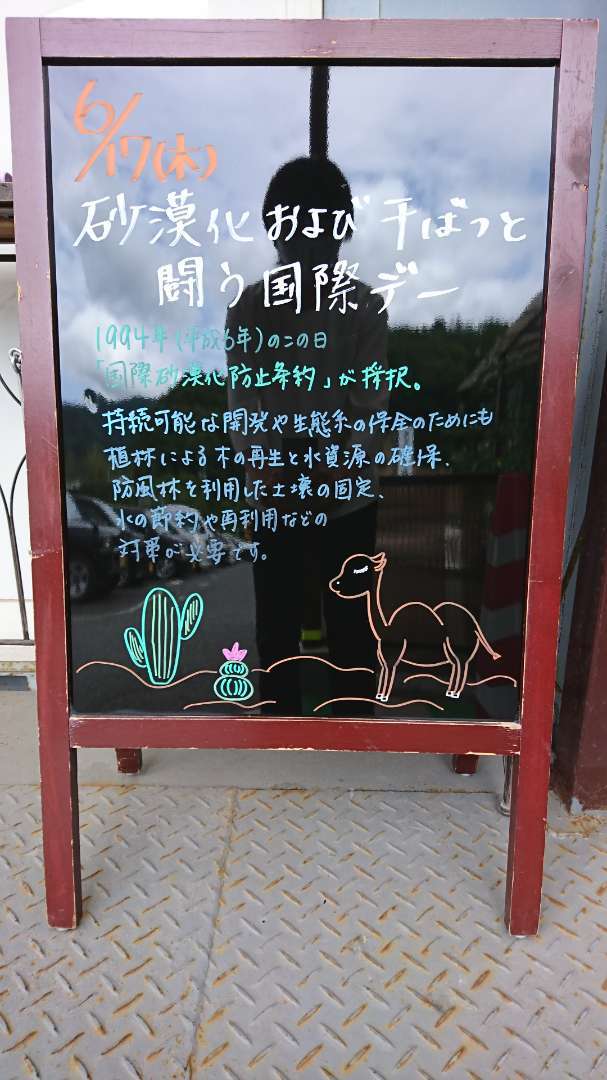 6/17(木)
砂漠化および干ばつと
闘う国際デー
1994年(平成6年)のこの日
「国際砂漠化防止条約」が採択。
持続可能な開発や生態系の保全のためにも
植林による木の再生と水資源の確保、
防風林を利用した土壌の固定、
水の節約や再利用などの
対策が必要です。